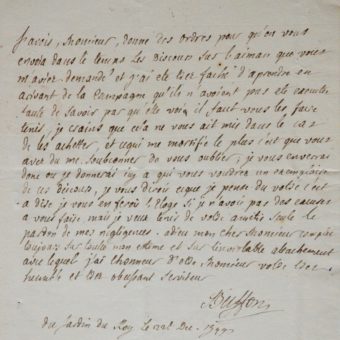 J'avois, Monsieur, donné des ordres pour qu'on vous
envoia dans le tems les discours sur l'aiman que vous
m'aviez demandé et j'ai été tres faché d'aprendre en
arivant de la Campagne qu'ils n'avoient pas eté
faute de savoir par qu'elle voie il faut vous les faire
tenir, je crains que cela ne vous ait mis dans le cas
de les acheter, et ce qui me mortifie le plus c'est que vous
avez du me soubconner de vous oublier, je vous enverai
donc ou je donnerai icy a qui vous voudrez un exemplaire
de ces discours, je vous dirois ce que je pense du votre c'est
a dire je vous en ferois l'eloge si je n'avois pas des excuses
a vous faire mais je veux tenir de votre amitié seule le
pardon de mes negligences. adieu mon cher Monsieur comptez
toujours sur toute mon estime et sur l'inviolable attachement
avec lequel j'ai l'honneur d'etre Monsieur votre tres
humble et tres obeissant serviteur
Buffon
du Jardin du Roy le Dec.